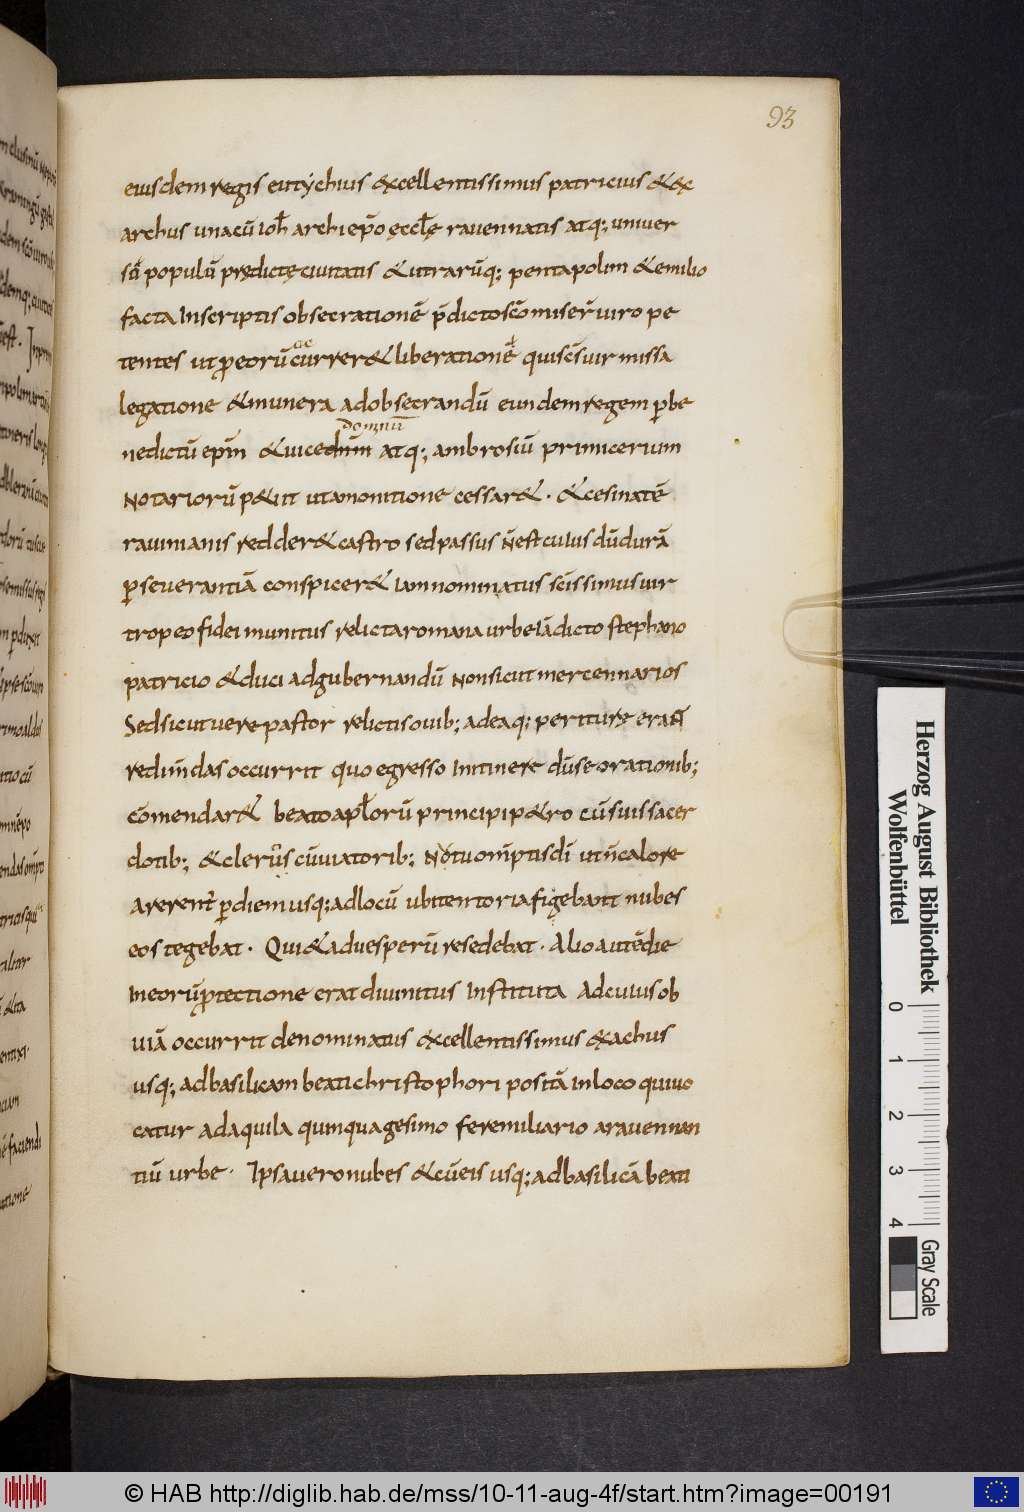 93
eiusdem regis eutychius &cellentissimus patricius & &
archus unacū ioh̄ archiep̄o ęccłę rauennatis atq; uniuer
sō populū prędictę ciuitatis & utrarūq; pentapolim & emilio
facta Inscriptis obsecrationē p̄dictoscōmiserūiro pe
tentes ut p̱eorū currer& liberationē quiscs̄uir missa
legatione & munera adobsecrandū eundem regem p̱be
domnū
nedictū ep̄m & uicedūm atq; ambrosiū primicerium
Notariorū p&iit utamonitione cessar& · & cesinatē
rauinianis redder& castro sed passus n̄est cuius dūdurā
p̱seuerantiā conspicer& Iamnominatus scīssimus uir
tropeo fidei munitus relicta romana urbe iādicto stephano
patricio & duci adgubernandū Nonsicut mercennarios
Sedsicut uere pastor relictis ouib; adeaq; periture eran̄
redim̄das occurrit quo egresso Initinere dūse orationib;
Cōmendar& beato apłorū principi p&ro cūsuis sacer
dotib; & clerūs cūuiatorib; Notu om̄ptis dī ut n̄calore
arerent̄ p̱diem usq; adlocū ubitentoria figebant nubes
eos tegebat · Qui& aduesperū resedebat · Alio autē die
Ineorūp̱tectione erat diuinitus Instituta Adcuius ob
uiā occurrit denominatus &cellentissimus &achus
usq; adbasilicam beati christophori positā inloco qui uo
catur adaquila quinquagesimo feremiliario arauennan
tiū urbe · Ipsa uero nubes & cū eis usq; adbasilicā beati
Herzog August Bibliothek
Wolfenbüttel
0 1 2 3 4
Gray Scale
© HAB http://diglib.hab.de/mss/10-11-aug-4f/start.htm?image=00191